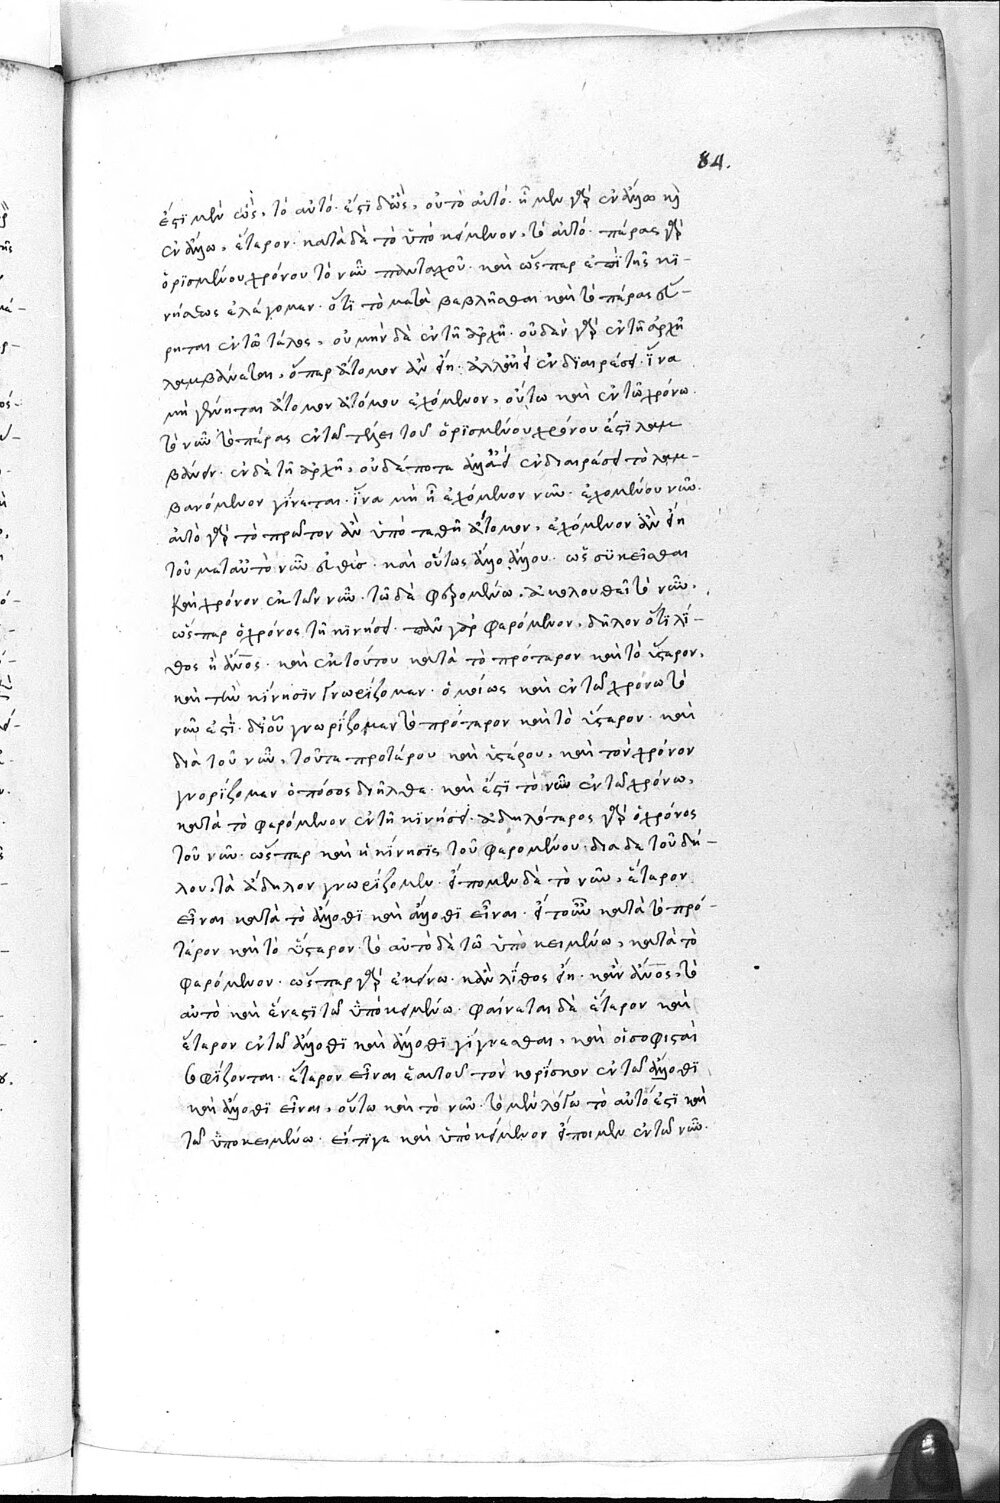 84.
ἔστι μὲν ὡς, τὸ αὐτό· ἔστι δ' ὡς, οὐ τὸ αὐτό· ᾗ μὲν γὰρ ἐν ἄλλω καὶ
ἐν ἄλλω, ἕτερον· κατὰ δὲ τὸ ὑποκείμενον, τὸ αὐτό· πέρας γὰρ
ὁρισμένου χρόνου τὸ νῦν πανταχοῦ· καὶ ὥσπερ ἐπὶ τῆς κι-
νήσεως ἐλέγομεν· ὅτι τὸ μεταβεβλῆσθαι καὶ τὸ πέρας εὕ-
ρηται ἐν τῶ τέλος, οὐ μὴν δὲ ἐν τῆ ἀρχῆ· οὐδὲν γὰρ ἐν τῆ ἀρχῆ
λαμβάνεται, ὅπερ ἄτομον ἂν εἴη· ἀλλ' ἀεὶ ἐν διαιρέσει· ἵνα
μὴ γένηται ἄτομον ἀτόμου ἐχόμενον, οὕτω καὶ ἐν τῶ χρόνω
τὸ νῦν τὸ πέρας ἐν τῶ τέλει τοῦ ὁρισμένου χρόνου ἔστι λαμ
βάνειν· ἐν δὲ τῆ ἀρχῆ, οὐδέποτε ἀλλ' ἀεὶ ἐν διαιρέσει τὸ λαμ-
βανόμενον γίνεται· ἵνα μὴ ᾖ ἐχόμενον νῦν· ἐχομένου νῦν·
αὐτὸ γὰρ τὸ πρῶτον ἂν ὑποτεθῆ ἄτομον, ἐχόμενον ἂν εἴη
τοῦ μετ' αὐτὸ νῦν εὐθὺς· καὶ οὕτως ἄλλο ἄλλου· ὡς συγκεῖσθαι
καὶ χρόνον ἐκ τῶν νῦν· τῶ δὲ φερομένω, ἀκολουθεῖ τὸ νῦν·
ὥσπερ ὁ χρόνος τῆ κινήσει· πᾶν γὰρ φερόμενον, δῆλον ὅτι λί-
θος ἢ ἄν̅ο̅ς· καὶ ἐκ τούτου κατὰ τὸ πρότερον καὶ τὸ ὕστερον,
καὶ τὴν κίνησιν γνωρίζομεν· ὁμοίως καὶ ἐν τῶ χρόνω τὸ
νῦν ἐστὶ· δι' οὗ γνωρίζομεν τὸ πρότερον καὶ τὸ ὕστερον· καὶ
διὰ τοῦ νῦν, τοῦτε προτέρου καὶ ὑστέρου, καὶ τὸν χρόνον
γνωρίζομεν ὁπόσος διῆλθε· καὶ ἔστι τὸ νῦν ἐν τῶ χρόνω,
κατὰ τὸ φερόμενον ἐν τῆ κινήσει· ἀδηλότερος γὰρ ὁ χρόνος
τοῦ νῦν· ὥσπερ καὶ ἡ κίνησις τοῦ φερομένου· διὰ δὲ τοῦ δή-
λου, τὰ ἄδηλον γνωρίζομεν· εἴπομεν δὲ τὸ νῦν, ἕτερον
εἶναι κατὰ τὸ ἄλλοθι καὶ ἄλλοθι εἶναι· ἤτοι κατὰ τὸ πρό-
τερον καὶ τὸ ὕστερον· τὸ αὐτὸ δὲ τῶ ὑποκειμένω, κατὰ τὸ
φερόμενον· ὥσπερ γὰρ ἐκεῖνο· κἂν λίθος εἴη· κἂν ἄν̅ο̅ς, τὸ
αὐτὸ καὶ ἕν ἐστι τῶ ὑποκειμένω· φαίνεται δὲ ἕτερον καὶ
ἕτερον ἐν τῶ ἄλλοθι καὶ ἄλλοθι γίγνεσθαι, καὶ οἱ σοφισταὶ
σοφίζονται· ἕτερον εἶναι ἑαυτοῦ τὸν κορίσκον ἐν τῶ ἄλλοθι
καὶ ἄλλοθι εἶναι, οὕτω καὶ τὸ νῦν· τὸ μὲν λόγω τὸ αὐτό ἐστι καὶ
τῶ ὑποκειμένω· εἴπερ γε καὶ ὑποκείμενον εἴποιμεν ἐν τῶ νῦν·